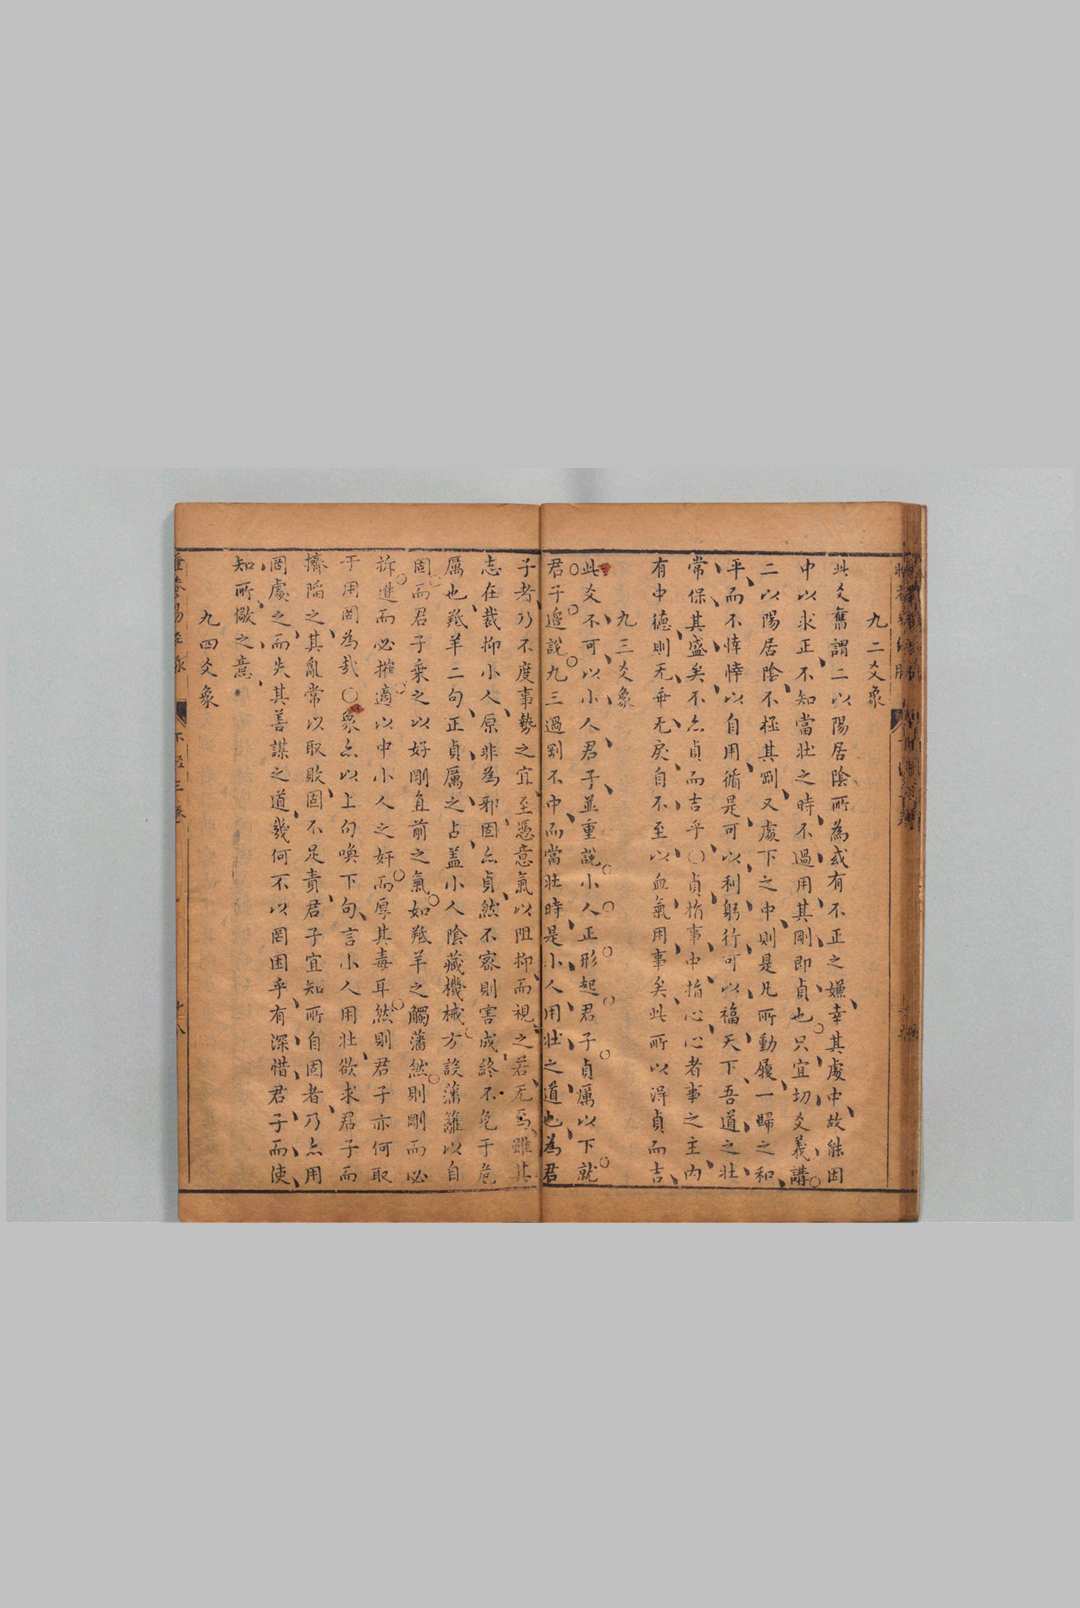 九二爻象
此爻舊謂二以陽居陰所為或有不正之嫌幸其處中故能因
中以求正不知當壯之時不過用其剛即貞也只宜切爻義講
二以陽居陰不極其剛又處下之中則是凡所動履一歸之和
平而不悻悻以自用循是可以利躬行可以福天下吾道之壯
常保其盛矣不亦貞而吉乎○貞指事中指心心者事之主內
有中德則无乖无戾自不至以血氣用事矣此所以得貞而吉
九三爻象
此爻不可以小人君子並重說小人正形起君子貞厲以下就
君子邊說九三過剛不中而當壯時是小人用壯之道也為君
子者乃不度事勢之宜至憑意氣以阻抑而視之若无焉雖其
志在裁抑小人原非為邪固亦貞然不審則害成終不免于危
厲也羝羊二句正貞厲之占蓋小人陰藏機械方設藩籬以自
固而君子乗之以好剛直前之氣如羝羊之觸藩然則剛而必
拆進而必摧適以中小人之奸而厚其毒耳然則君子亦何取
于用罔為哉○象亦以上句喚下句言小人用壯欲求君子而
擠陷之其亂常以取敗固不足責君子宜知所自固者乃亦用
罔處之而失其善謀之道幾何不以罔困乎有深惜君子而使
知所儆之意
九四爻象